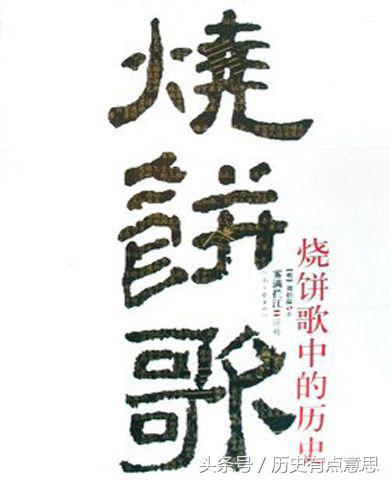 燒
餅
歌
烧饼歌中的历史
雾满拦江
头条号 / 历史有点意思